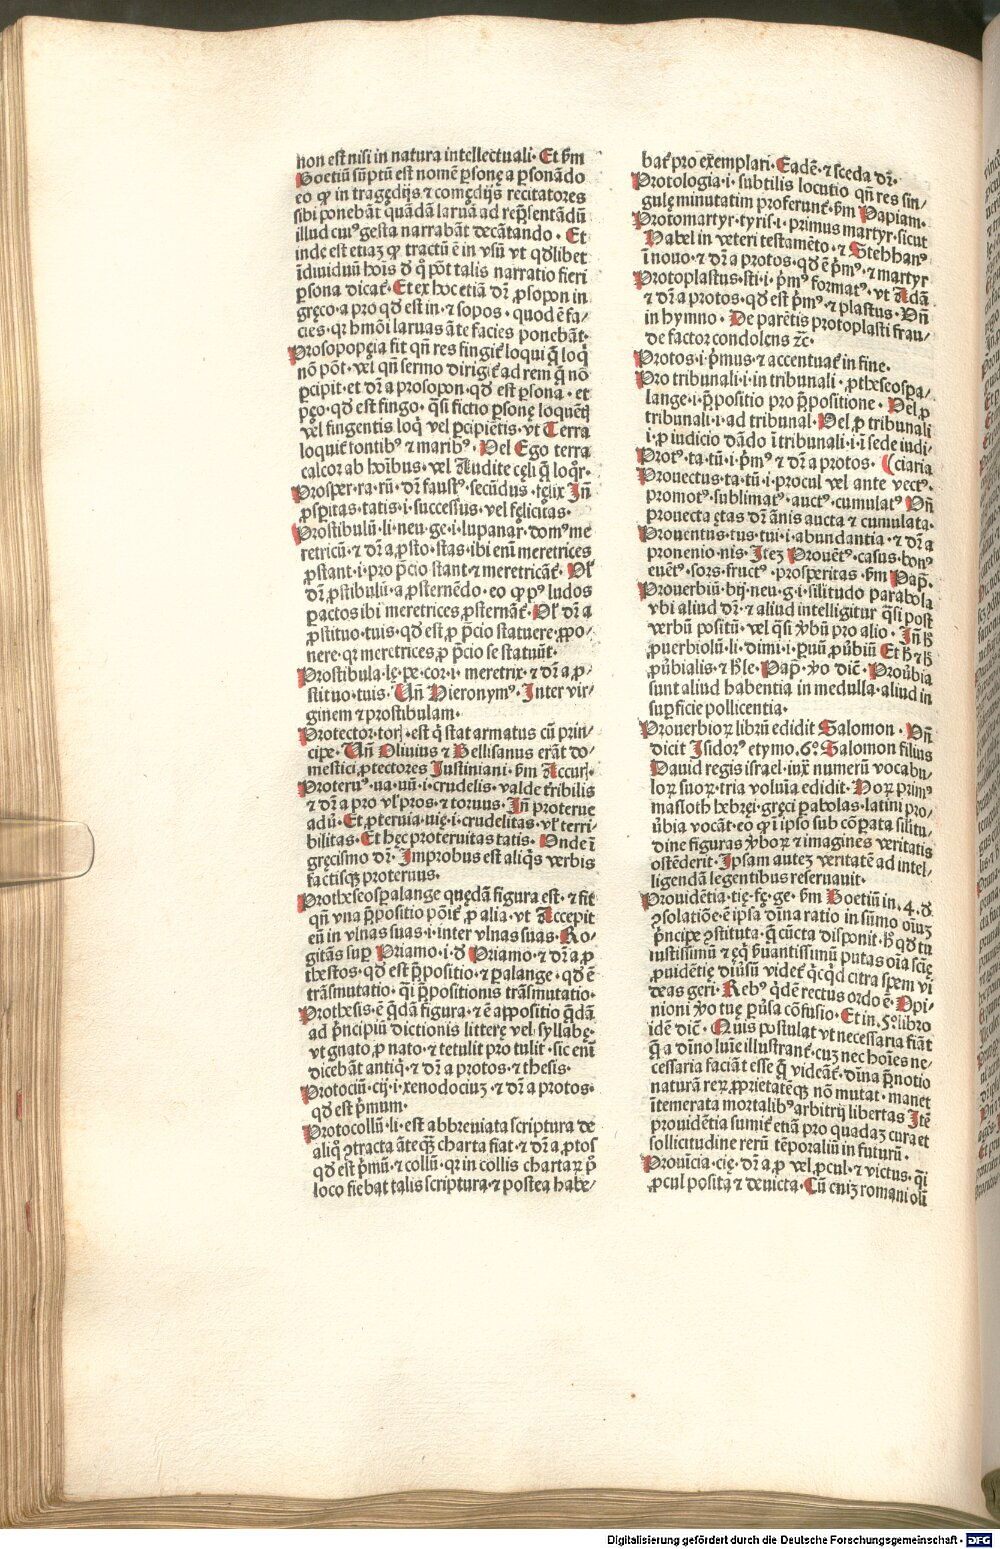 non est nisi in natura intellectuali· Et ẜm
Boetiū sūptū est nomē ꝑsonę a ꝑsonādo
eo ꝙ in tragędijs ⁊ comędijs recitatores
sibi ponebāt quādā laruā ad rep̄sentādū
illud cuiꝰ gesta narrabāt decātando· Et
inde est etiaꝫ ꝙ tractū ē in vsū vt qd̄libet
īdiuiduū hoīs d̓ qͦ pōt talis narratio fieri
ꝑsona dicat᷑· Et ex hoc etiā dr̄ ꝓsopon in
gręco·a pro qd̄ est in·⁊ sopos·quod ē fa/
cies·qr hmōi laruas āte facies ponebāt·
Prosopopęia fit qn̄ res fingit᷑ loqui q̄ loqͥ
nō pōt·vel qn̄ sermo dirigit᷑ ad rem q̄ nō
ꝑcipit·et dr̄ a prosopon·qd̄ est ꝑsona·et
pęo·qd̄ est fingo·q̄si fictio ꝑsonę loquētꝭ
vel fingentis loqͥ vel ꝑcipiētis·vt Terra
loquit᷑ fontibꝰ ⁊ maribꝰ·Vel Ego terra
calcor ab hoībus·vel Audite cęli q̄ loqͦr·
Prosper·ra·rū·dr̄ faustꝰ·secūdus·fęlix Jn̄
ꝓspitas·tatis·i·successus·vel fęlicitas·
Prostibulū·li·neu·ge·i·lupanar·domꝰ me
retricū·⁊ dr̄ a ꝓsto·stas·ibi enī meretrices
ꝓstant·i·pro p̄cio stant·⁊ meretricāt᷑·Vl̓
dr̄ ꝓstibulū·a ꝓsternēdo·eo ꝙ pꝰ ludos
ꝑactos ibi meretrices ꝓsternāt᷑·Vl̓ dr̄ a
ꝓstituo·tuis·qd̄ est ꝓ p̄cio statuere·ꝓpo/
nere·qr meretrices ꝓ p̄cio se statuūt·
Prostibula·lę·pe·cor·i·meretrix·⁊ dr̄ a ꝓ/
stituo·tuis·Vn̄ Hieronymꝰ·Jnter vir/
ginem ⁊ prostibulam·
Protector·torꝭ·est qͥ stat armatus cū prin/
cipe·Vn̄ Oliuius ⁊ Bellisanus erāt do/
mestici ꝓtectores Justiniani·ẜm Accurſ·
Proteruꝰ·ua·uū·i·crudelis·valde tr̄ribilis
⁊ dr̄ a pro vl̓ pros·⁊ toruus·Jn̄ proterue
adū·Et ꝓteruia·uię·i·crudelitas·vl̓ terri/
bilitas·Et hęc proteruitas·tatis·Vnde ī
gręcismo dr̄·Jmprobus est aliqͥs verbis
factisqꝫ proteruus·
Protheseosꝑalange quędā figura est·⁊ fit
qn̄ vna p̄positio pōit᷑ ꝓ alia·vt Accepit
eū in vlnas suas·i·inter vlnas suas·Ro/
gitās suꝑ Priamo·i·d̓ Priamo·⁊ dr̄ a ꝓ
thestos·qd̄ est p̄positio·⁊ ꝑalange·qd̄ ē
trāsmutatio·q̄i p̄positionis trāsmutatio·
Prothesis·ē q̄dā figura·⁊ ē appositio q̄dā
ad p̄ncipiū dictionis litterę vel syllabę·
vt gnato ꝓ nato·⁊ tetulit pro tulit·sic enī
dicebāt antiqͥ·⁊ dr̄ a protos·⁊ thesis·
Protociū·cij·i·xenodociuꝫ·⁊ dr̄ a protos·
qd̄ est p̄mum·
Protocollū·li·est abbreuiata scriptura de
aliqͦ ꝯtracta āteqꝫ̄ charta fiat·⁊ dr̄ a ꝓtos
qd̄ est p̄mū·⁊ collū·qr in collis chartaꝝ pͥ
loco fiebat talis scriptura·⁊ postea habe/
bat᷑ pro exemplari·Eadē·⁊ sceda dr̄·
Protologia·i·subtilis locutio qn̄ res sin/
gulę minutatim proferunt᷑·ẜm Papiam·
Protomartyr·tyris·i·primus martyr·sicut
Habel in veteri testamēto·⁊ Stephanꝰ
ī nouo·⁊ dr̄ a protos·qd̄ ē p̄mꝰ·⁊ martyr
Protoplastus·sti·i·p̄mꝰ formatꝰ·vt Adā
⁊ dr̄ a protos·qd̄ est p̄mꝰ·⁊ plastus·Vn̄
in hymno·De parētis protoplasti frau/
de factor condolens ⁊c·
Protos·i·p̄mus·⁊ accentuat᷑ in fine·
Pro tribunali·i·in tribunali·ꝓtheseosꝑa/
lange·i·p̄positio pro p̄positione·Vel ꝓ
tribunali·i·ad tribunal·Vel ꝓ tribunali
i·ꝓ iudicio dādo ī tribunali·i·ī sede iudi/
Protꝰ·ta·tū·i·p̄mꝰ ⁊ dr̄ a protos· (ciaria
Prouectus·ta·tū·i·procul vel ante vectꝰ·
promotꝰ·sublimatꝰ·auctꝰ·cumulatꝰ Vn̄
prouecta ętas dr̄ ānis aucta ⁊ cumulata·
Prouentus·tus·tui·i·abundantia·⁊ dr̄ a
prouenio·nis·Jteꝫ Prouētꝰ·casus·bonꝰ
euētꝰ·sors·fructꝰ·prosperitas·ẜm Pap̄·
Prouerbiū·bij·neu·g·i·silitudo parabola
vbi aliud dr̄·⁊ aliud intelligitur q̄si post
verbū positū·vel q̄si v̓bū pro alio·Jn̄ h̓
ꝓuerbiolū·li·dimi·i·ꝑuū ꝓu̓biū Et h̓ ⁊ h̓
ꝓu̓bialis·⁊ h̓ le·Pap̄·v̓o dic̄·Prou̓bia
sunt aliud habentia in medulla·aliud in
suꝑficie pollicentia·
Prouerbioꝝ librū edidit Salomon·Vn̄
dicit Jsidorꝰ etymo.6º Salomon filius
Dauid regis israel·iux̄ numerū vocabu/
loꝝ suoꝝ·tria volūia edidit·Hoꝝ primꝰ
masloth hebręi·gręci ꝑabolas·latini pro/
u̓bia vocāt·eo ꝙ ī ipso sub cōꝑata silitu/
dine figuras v̓boꝝ ⁊ imagines veritatis
ostēderit·Jpsam auteꝫ veritatē ad intel/
ligendā legentibus reseruauit·
Prouidētia·tię·fę·ge·ẜm Boetiū in.4.d̓
ꝯsolatiōe·ē ipsa dīna ratio in sūmo oīuꝫ
p̄ncipe ꝯstituta·q̄ cūcta disponit·h̓ qd̄ tu
iustissimū ⁊ eqͥ ẜuantissimū putas oīa scię
ꝓuidētię diu̓sū videt᷑ qͥcqͥd citra spem vi
deas geri·Rebꝰ qͥdē rectus ordo ē·Opi/
nioni v̓o tuę ꝑu̓sa cōfusio·Et in.5º libro
idē dic̄·Quis postulat vt necessaria fiāt
q̄ a dīno luīe illustrant᷑·cuꝫ nec hoīes ne/
cessaria faciāt esse q̄ videāt᷑·dīna p̄notio
naturā reꝝ ꝓprietatēqꝫ nō mutat·manet
ītemerata mortalibꝰ arbitrij libertas Jtē
prouidētia sumit᷑ etiā pro quadaꝫ cura et
sollicitudine rerū tēporaliū in futurū·
Prouīcia·cię·dr̄ a ꝓ vel ꝓcul·⁊ victus·q̄i
ꝓcul posita ⁊ deuicta·Cū eniꝫ romani olī
Digitalisierung gefördert durch die Deutsche Forschungsgemeinschaft - DFG